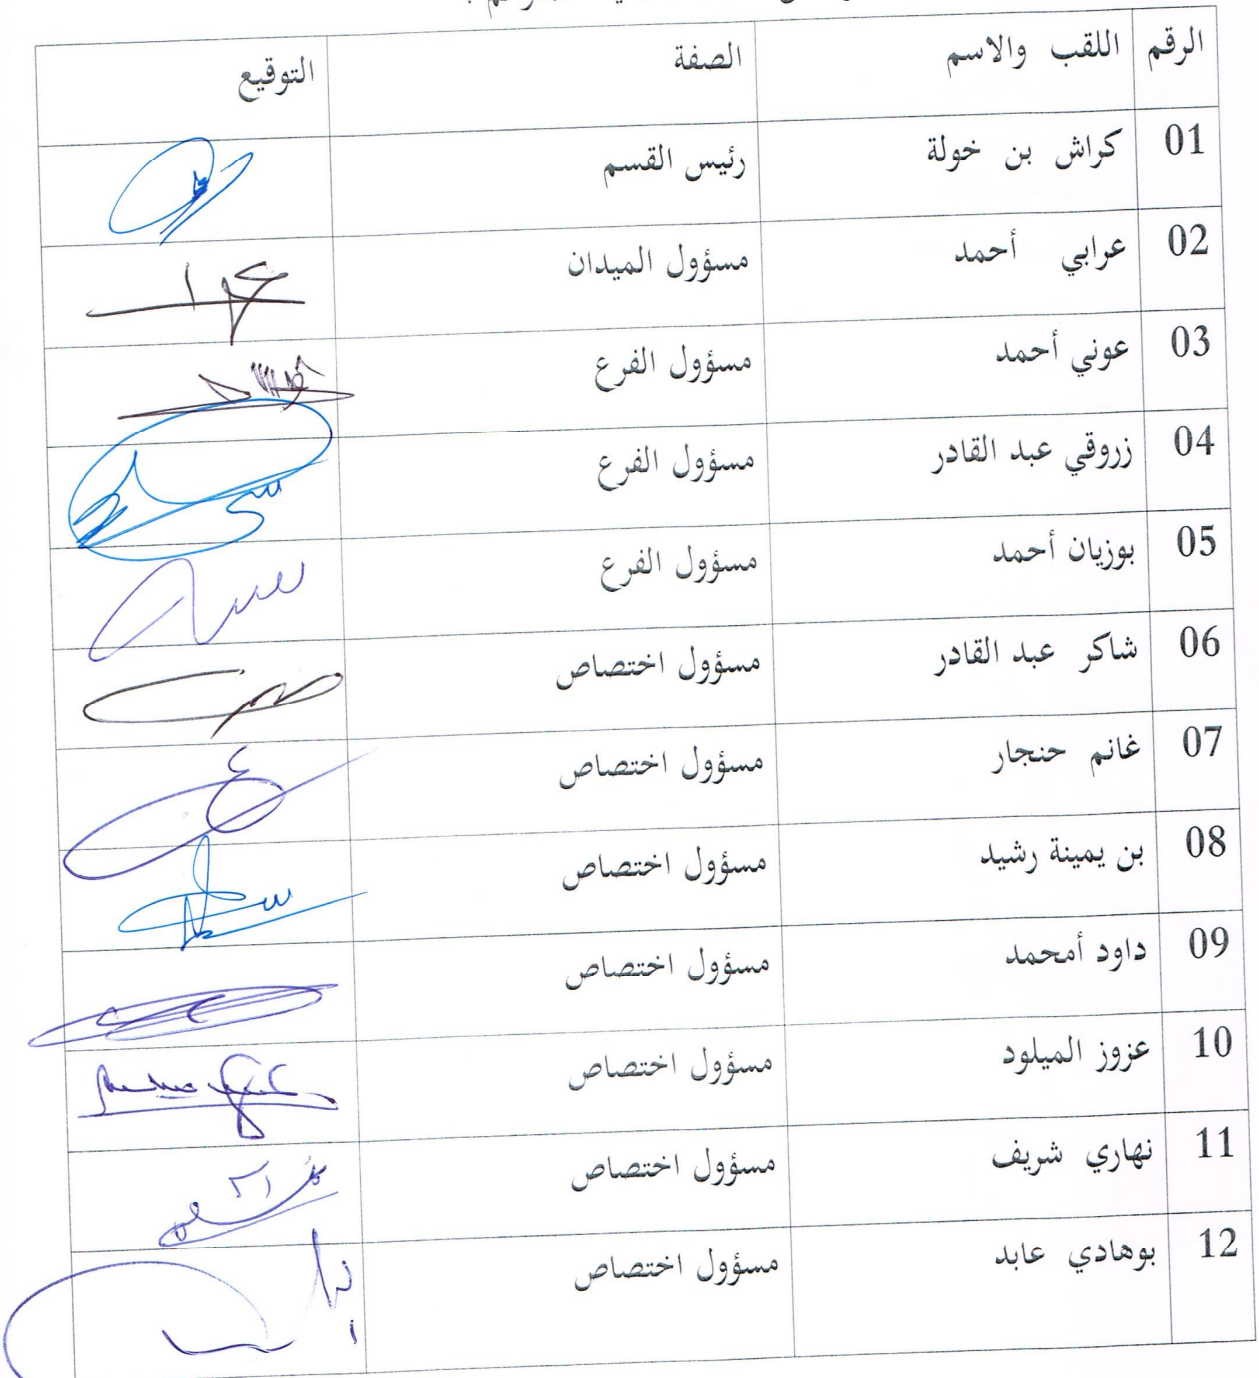 الرقم اللقب والاسم الصفة التوقيع
01 كراش بن خولة رئيس القسم
02 عرابي أحمد مسؤول الميدان
03 عوني أحمد مسؤول الفرع
04 زروقي عبد القادر مسؤول الفرع
05 بوزيان أحمد مسؤول الفرع
06 شاكر عبد القادر مسؤول اختصاص
07 غانم حنجار مسؤول اختصاص
08 بن يمينة رشيد مسؤول اختصاص
09 داود أمحمد مسؤول اختصاص
10 عزوز الميلود مسؤول اختصاص
11 نهاري شريف مسؤول اختصاص
12 بوهادي عابد مسؤول اختصاص